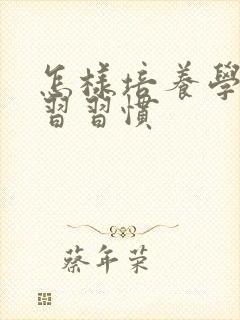 怎樣培養學
習習慣
蔡年荣